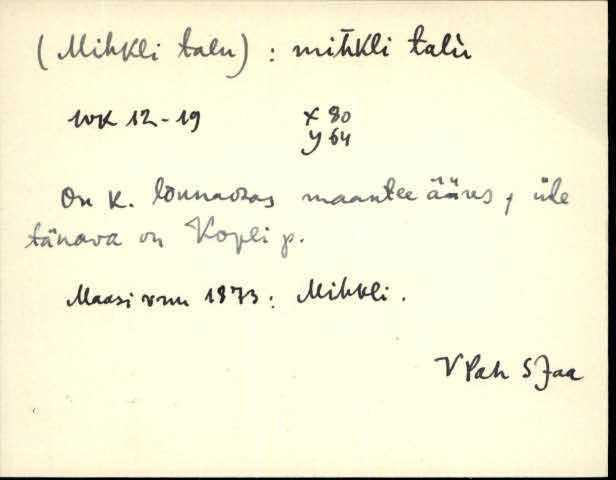 (Mihkli talu) : mih̀kli talù
WK 12-19 X 80
Y 64
On K. lõunaosas maantee ääres, üle
tänava on Kopli p.
Maasi vmn 1873: Mihkli.
V Pah S Jaa